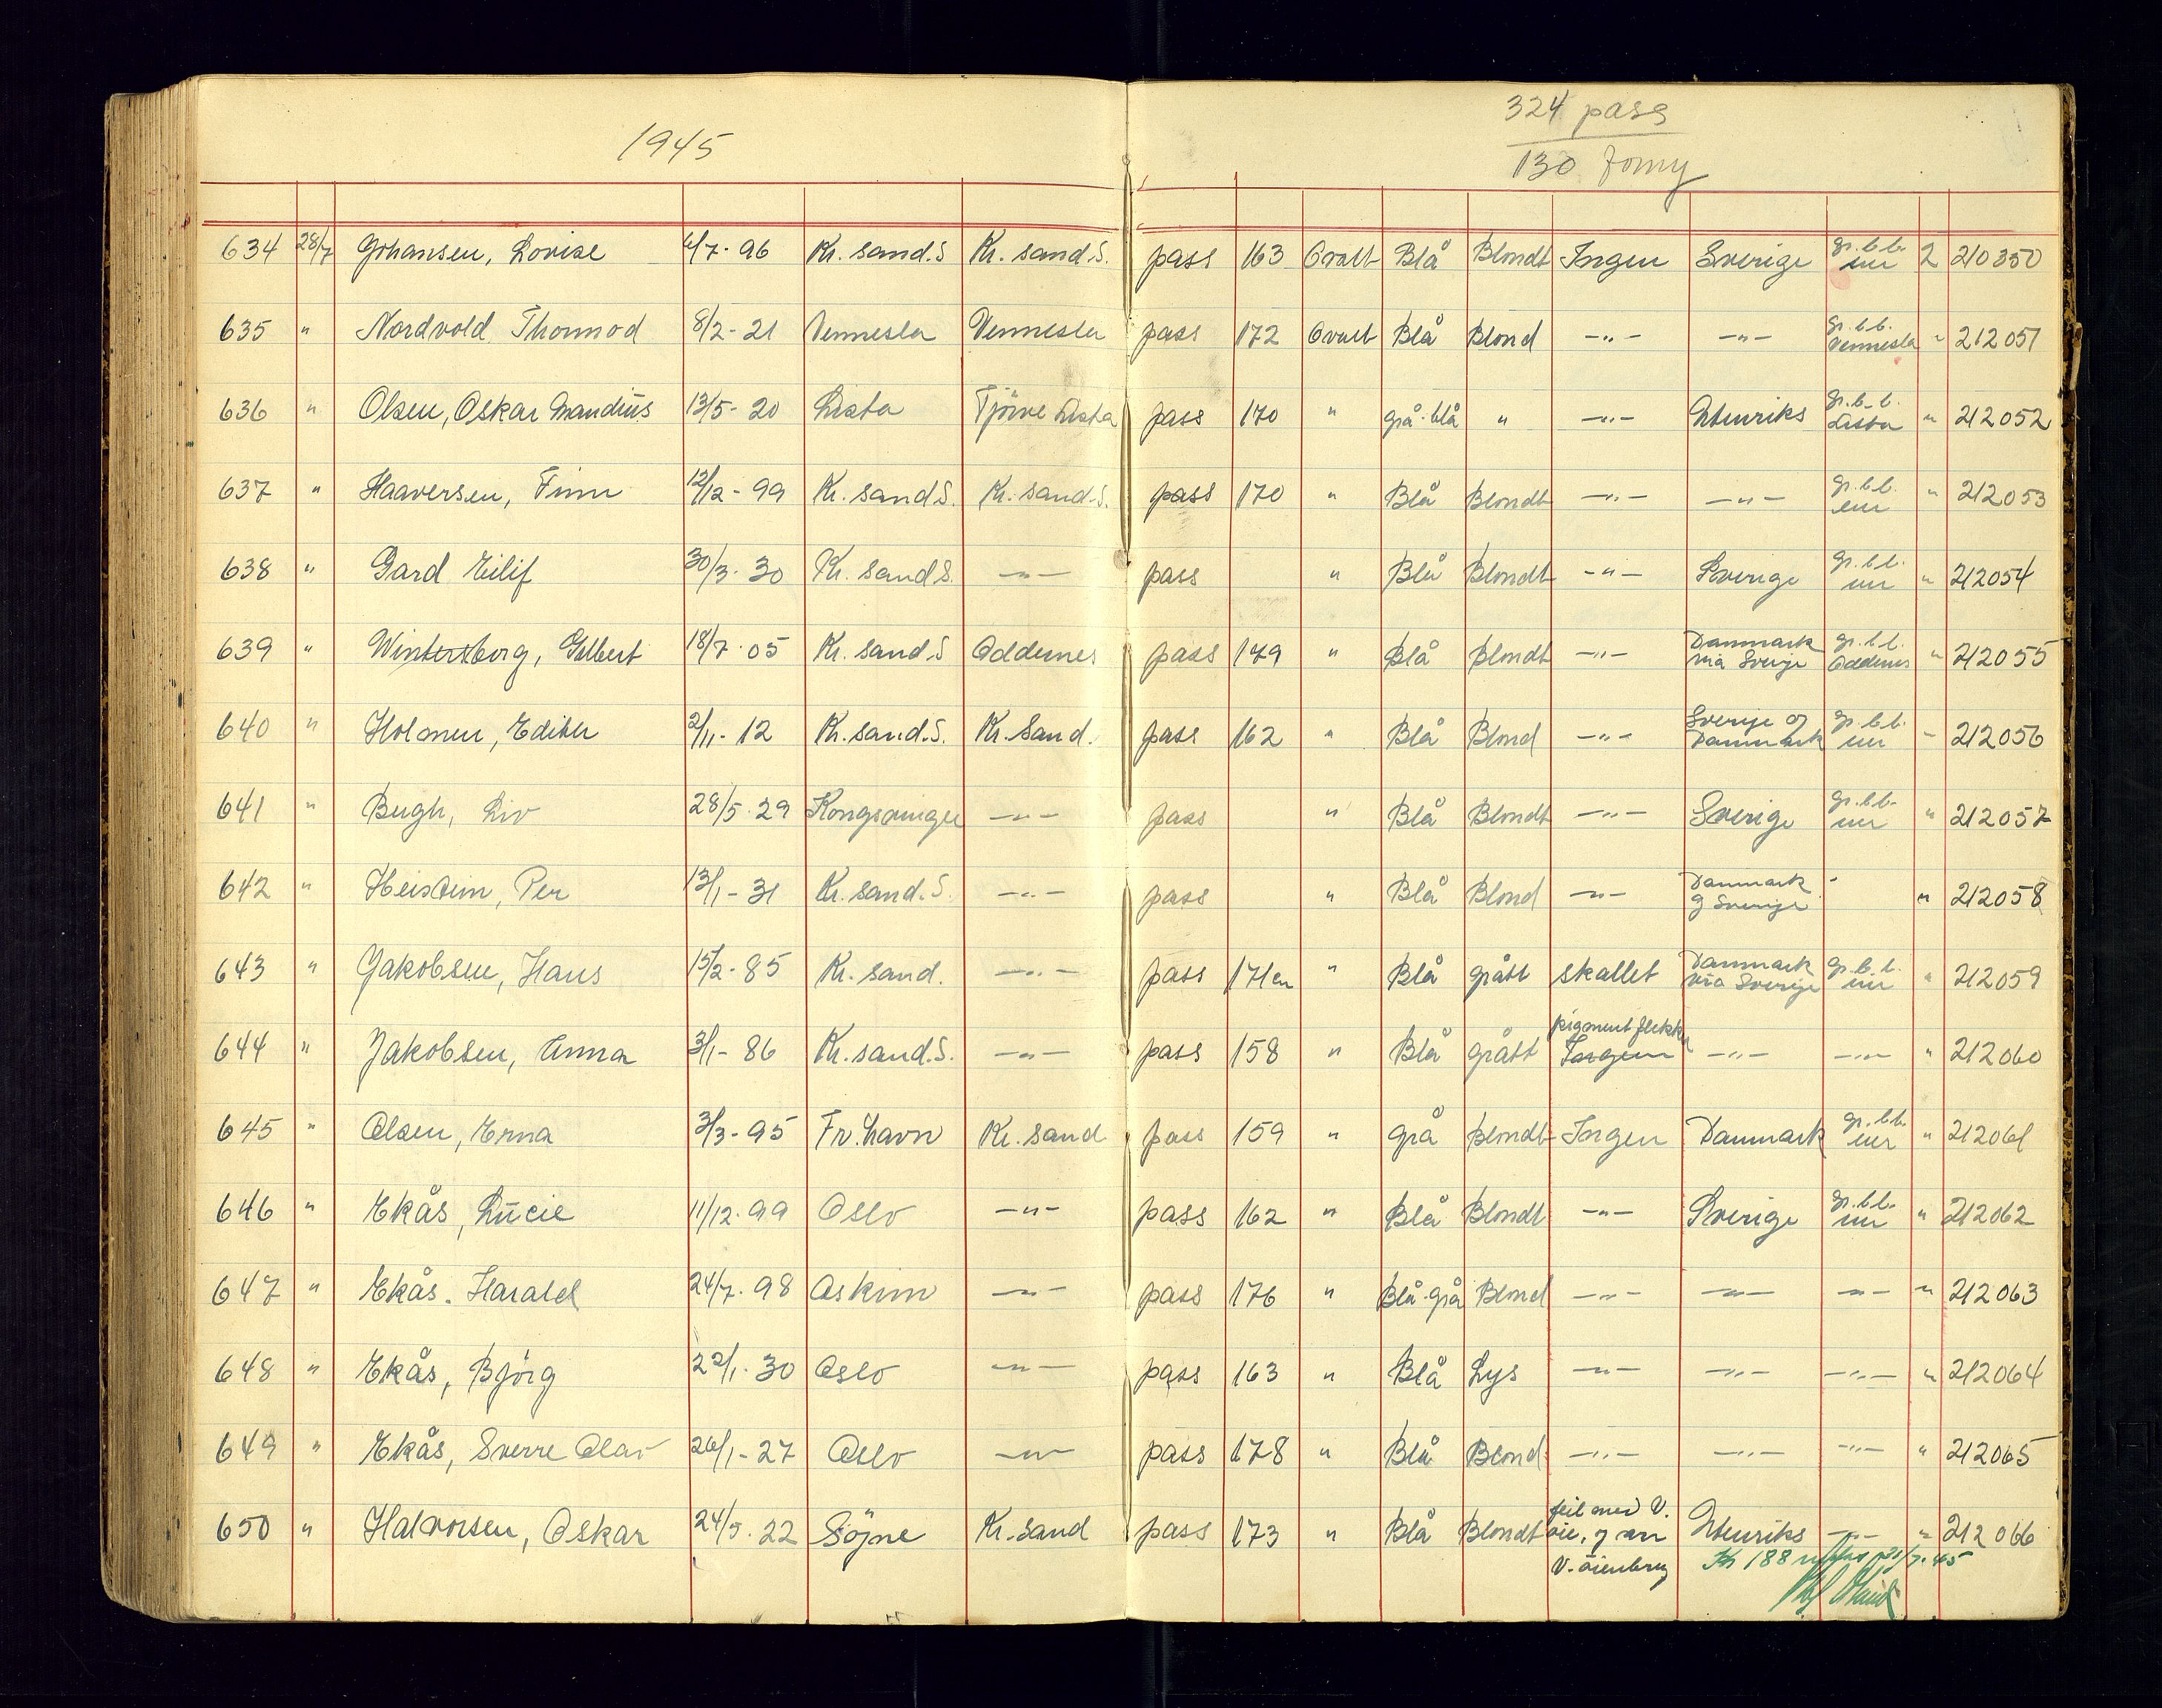 1945
324 pass
130 Forny
634 28/7 Johansen, Lovise 6/7-96 Kr. sand.S Kr. sand.S. pass 163 Ovalt Blå Blondt Ingen Sverige gr.b.b. eur 2 210350
635 " Nordvold Thormod 8/2-21 Vennesla Vennesla pass 172 Ovalt Blå Blond -"- -"- gr.b.b. Vennesla " 212051
636 " Olsen, Oskar Mandius 13/5-20 Lista Tjörve Lista pass 170 " grå-blå " -"- Utenriks gr.b.b. Lista " 212052
637 " Haaversen, Finn 12/12-99 Kr. sand S. Kr. sand.S. pass 170 " Blå Blondt -"- -"- gr.b.b. eur " 212053
638 " Gard Eilif 30/3-30 Kr. sand S. -"- pass " Blå Blondt -"- Sverige gr.b.b. eur " 212054
639 " Wintersborg, Gilbert 18/7-05 Kr. sand S Oddernes pass 179 " Blå Blondt -"- Danmark via Sverije gr.b.b. Oddernes " 212055
640 " Holmen, Edith 2/11-12 Kr. sand.S. Kr. Sand. pass 162 " Blå Blond -"- Sverije og Danmark gr.b.b. eur " 212056
641 " Bugh, Liv 28/5-29 Kongsvinger -"- pass " Blå Blondt -"- Sverige gr.b.b. eur " 212057
642 " Per 13/1-31 Kr. sand.S. -"- pass " Blå Blond -"- Danmark og Sverije " " 212058
643 " Jakobsen, Hans 15/2-85 Kr. sand. -"- pass 171 cm " Blå grått skallet Danmark via Sverije gr.b.b. eur " 212059
644 " Jakobsen, Anna 3/1-86 Kr. sand.S. -"- pass 158 " Blå grått pigment flekker Ingen -"- -"- " 212060
645 " Olsen, Erna 3/3-95 Fr. havn Kr. sand pass 159 " grå Blondt Ingen Danmark gr.b.b. eur " 212061
646 " Ekås, Lucie 11/12-99 Oslo -"- pass 162 " Blå Blondt -"- Sverige gr.b.b. eur " 212062
647 " Ekås. Harald 24/7-98 Askim -"- pass 176 " Blå-grå Blond -"- -"- -"- " 212063
648 " Ekås, Björg 22/1-30 Oslo -"- pass 163 " Blå Lys -"- -"- -"- " 212064
649 " Ekås, Sverre Olav 26/1-27 Oslo -"- pass 178 " Blå Blond -"- -"- -"- " 212065
650 " Halvorsen, Oskar 24/5-22 Söjne Kr. sand pass 173 " Blå Blondt feil med V. öie, og arr V. öienbryn Utenriks -"- " 212066
Kr 188 31/7-45